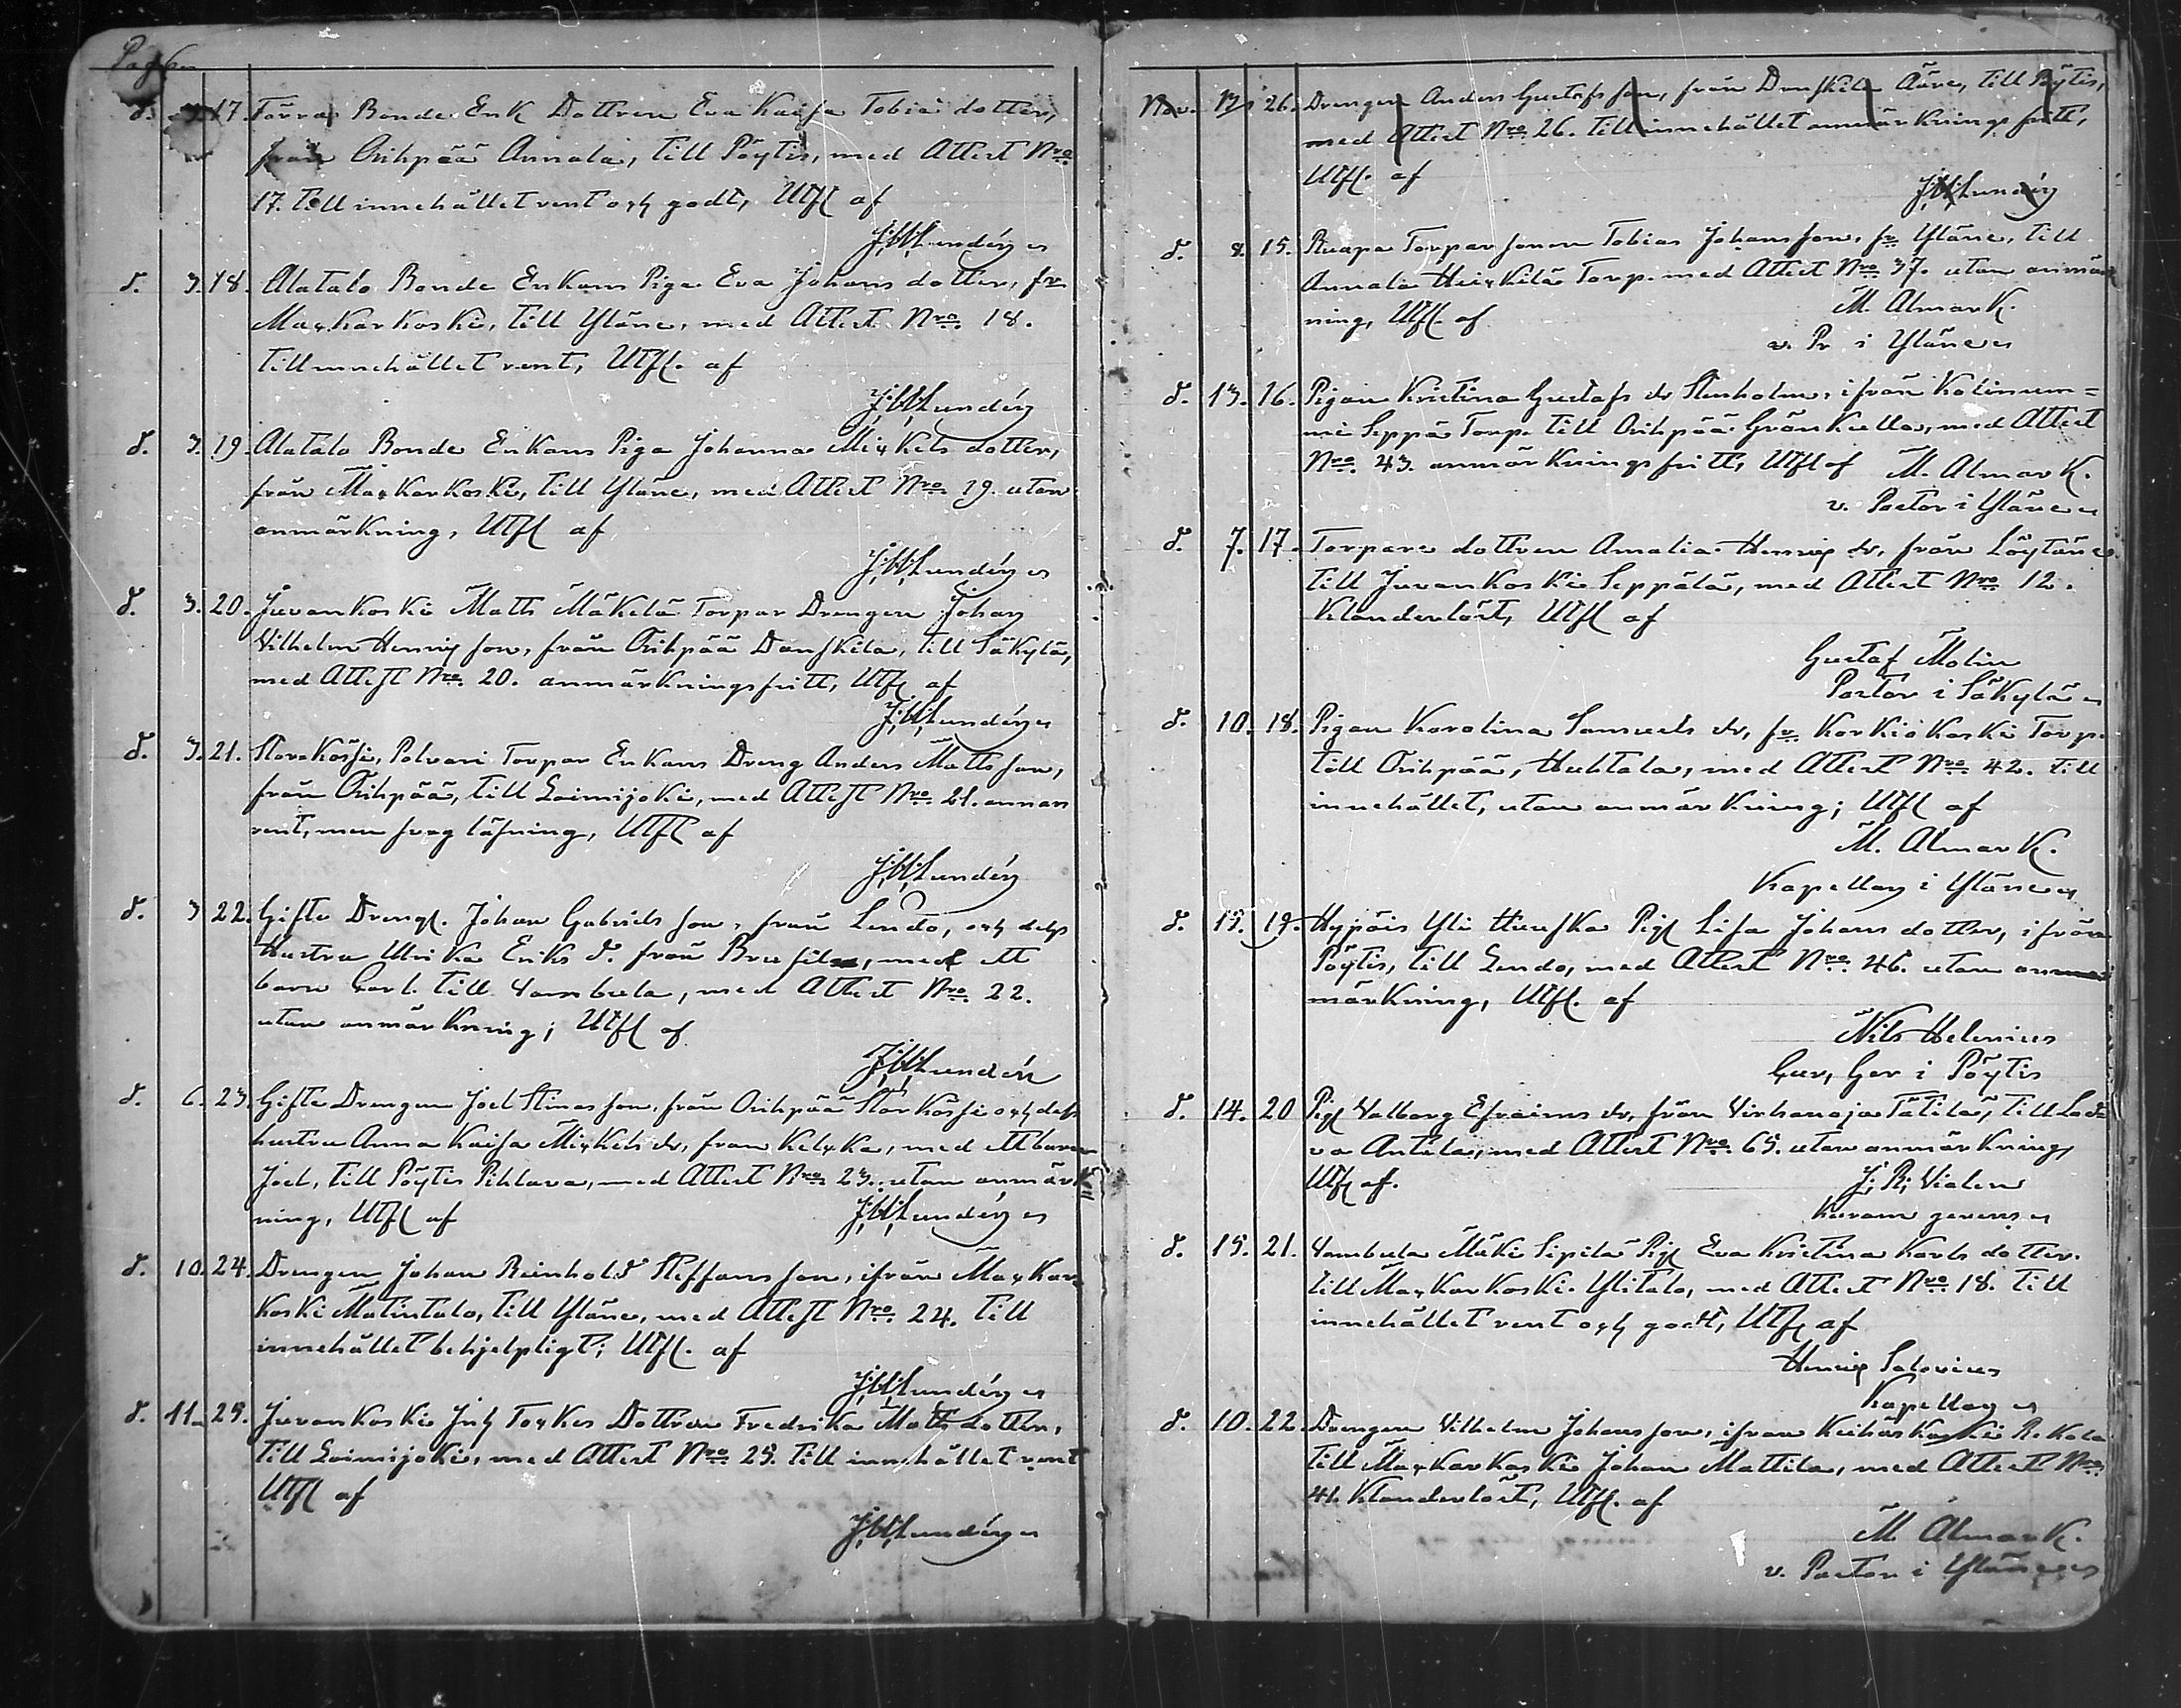 Pag 6
d. 3. 17. Törra Bonde Enk Dottren Eva Kaisa Tobiae dotter,
från Orihpää Annala, till Pöytis, med Attest Nro
17. till innehållet rent och godt, Utfl af
J. W. Lundén
d. 3. 18. Alatalo Bonde Enkans Piga Eva Johans dotter, fr.
Mackarkoski, till Yläne, med Attest Nro. 18.
till innehållet rent, Utfl. af
J. W. Lundén
d. 3. 19. Alatalo Bonde Enkans Piga Johanna Mickels dotter,
från Mackarkoski, till Yläne, med Attest Nro 19. utan
anmärkning, Utfl af
J. W. Lundén
d. 3. 20. Juvankoski Matts Mäkelä Torpar Drengen Johan
Vilhelm Henricsson, från Orihpää Danskila, till Säkylä,
med Attest Nro. 20. anmärkningsfritt, Utfl af
J. W. Lundén
d. 3. 21. Storakössi, Polvari Torpar Enkans Dreng Anders Mattsson,
från Orihpää, till Loimijoki, med Attest Nro. 21. annars
rent, men svag läsning, Utfl af
J. W. Lundén
d. 3 22. Gifte Drengl. Johan Gabrielsson, från Lendo, och dess
Hustru Ulrika Eriks d. från med ett
barn Carl. till Vambula, med Attest Nro 22.
utan anmärkning; Utfl af
J. W. Lundén
d. 6. 23. Gifte Drengen Joel Simasson, från Orihpää Storkössi och dess
hustru Anna Kaisa Mickels dr, från Kelcka, med ett barn
Joel, till Pöytis Pihlava, med Attest Nro 23. utan anmärk
ning, Utfl af J. W. Lundén
d. 10. 24. Drengen Johan Reinhold Steffansson, ifrån Mackar
koski Matintalo, till Yläne, med Attest Nro. 24. till
innehållet behjelpligt; Utfl. af
J. W. Lundén
d. 11. 25. Juvankoski Dottren Fredrika Matts dotter,
till Loimijoki, med Attest Nro 25. till innehållet rent
Utfl af
J. W. Lundén
Nov. 26. Drengen Anders Gustafsson, från Danskila Ääre, till Pöytis,
med Attest Nro. 26. till innehållet anmärkningsfritt,
Utfl. af
J. W. Lundén
d. 8. 15. Ruapa Torpar sonen Tobias Johansson, fr. Yläne, till
Annala Heickilä Torp. med Attest Nro 37. utan anmärk
ning, Utfl. af M. Almark.
v. Pr i Yläne
d. 13. 16. Pigan Kristina Gustafs dr Stenholm, ifrån Kolinum=
mi Seppä Torp. till Orihpää Grönkulla, med Attest
Nro. 43. anmärkningsfritt, Utfl af M. Almark.
v. Pastor i Yläne
d. 7. 17. Torpare dottren Amalia Henrics dr, från Löytäne
till Juvankoski Seppälä, med Attest Nro 12.
Klanderlöst, Utfl af
Gustaf Molin
Pastor i Säkylä
d. 10. 18. Pigan Karolina Samuels dr, fr. Korkiakoski Torp.
till Orihpää, Huhtala, med Attest Nro. 42. till
innehållet, utan anmärkning; Utfl af
M. Almark.
Kapellan i Yläne
d. 13. 19. Hypöis Yli Huuska Pig Lisa Johans dotter, ifrån
Pöytis, till Lendo, med Attest Nro. 46. utan an
märkning, Utfl. af
Nils Helenius
Cur, Ger i Pöytis
d. 14. 20 Pig Valborg Efraims dr, från Virhanoja Tätilä, till Lad
va Antila, med Attest Nro. 65. utan anmärkning
Utfl af. J. R. Vialen
Kuram gerens
d. 15. 21. Vambula Mäki Sipilä Pig Eva Kristina Karls dotter.
till Mackarkoski Ylitalo, med Attest Nro 18. till
innehållet rent och godt, Utfl af
Henric Salovius
Kapellan
d. 10. 22. Drengen Vilhelm Johansson, ifrån Keihäskoski R.Kala
till Mackarkoski Johan Mattila, med Attest Nro
41. Klanderlöst, Utfl. af
M. Almark.
v. Pastor i Yläne